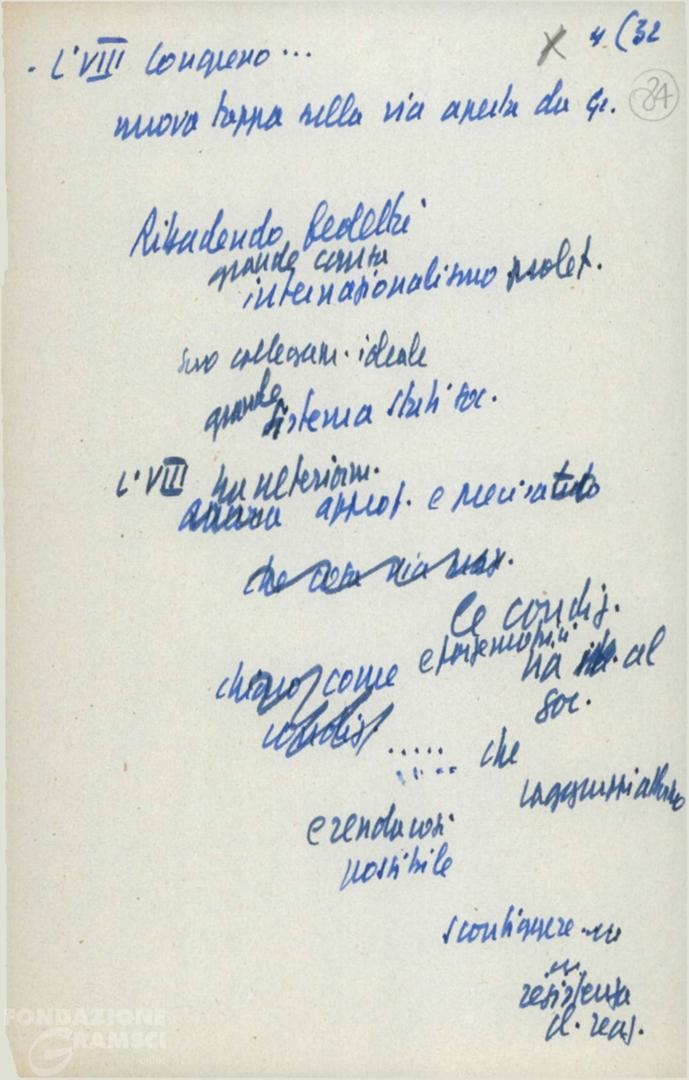 - L'VIII Congresso...
4 (32
84
nuova tappa nella via aperta da G.
Ribadendo fedeltà
grande causa
internazionalismo prolet.
suo collegam. ideale
grande
sistema stati soc.
L'VIII ha ulteriorm.
approf. e precisato
che cosa via
le condiz.
chiaro come e
via it. al
soc.
condiz.
..... che
e renda così
possibile
sconfiggere
resistenza
cl. reaz.
FONDAZIONE
GRAMSCI